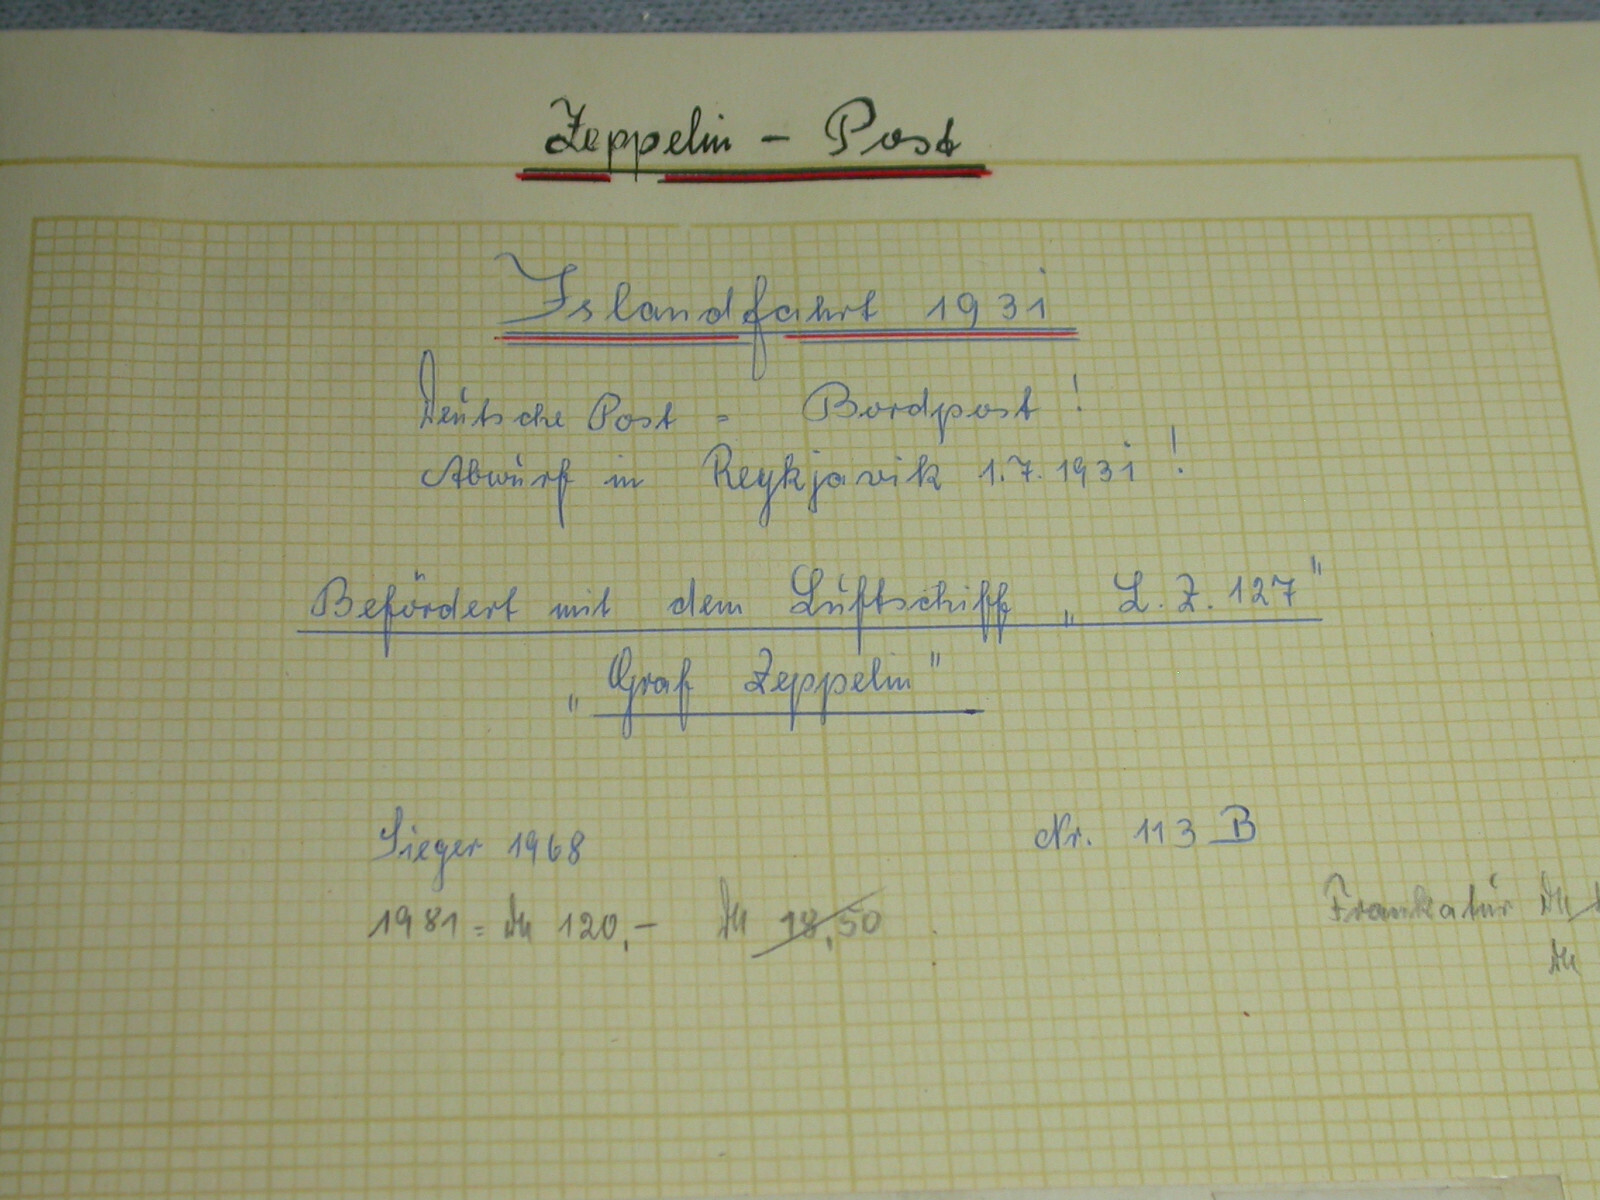 Zeppelin - Post
Islandfahrt 1931
Deutsche Post = Bordpost!
Abwurf in Reykjavik 1.7.1931!
Befördert mit dem Luftschiff „L.Z. 127"
„Graf Zeppelin"
Sieger 1968 Nr. 113 B
1981 = DM 120,- DM 18,50
Frankatur DM
DM